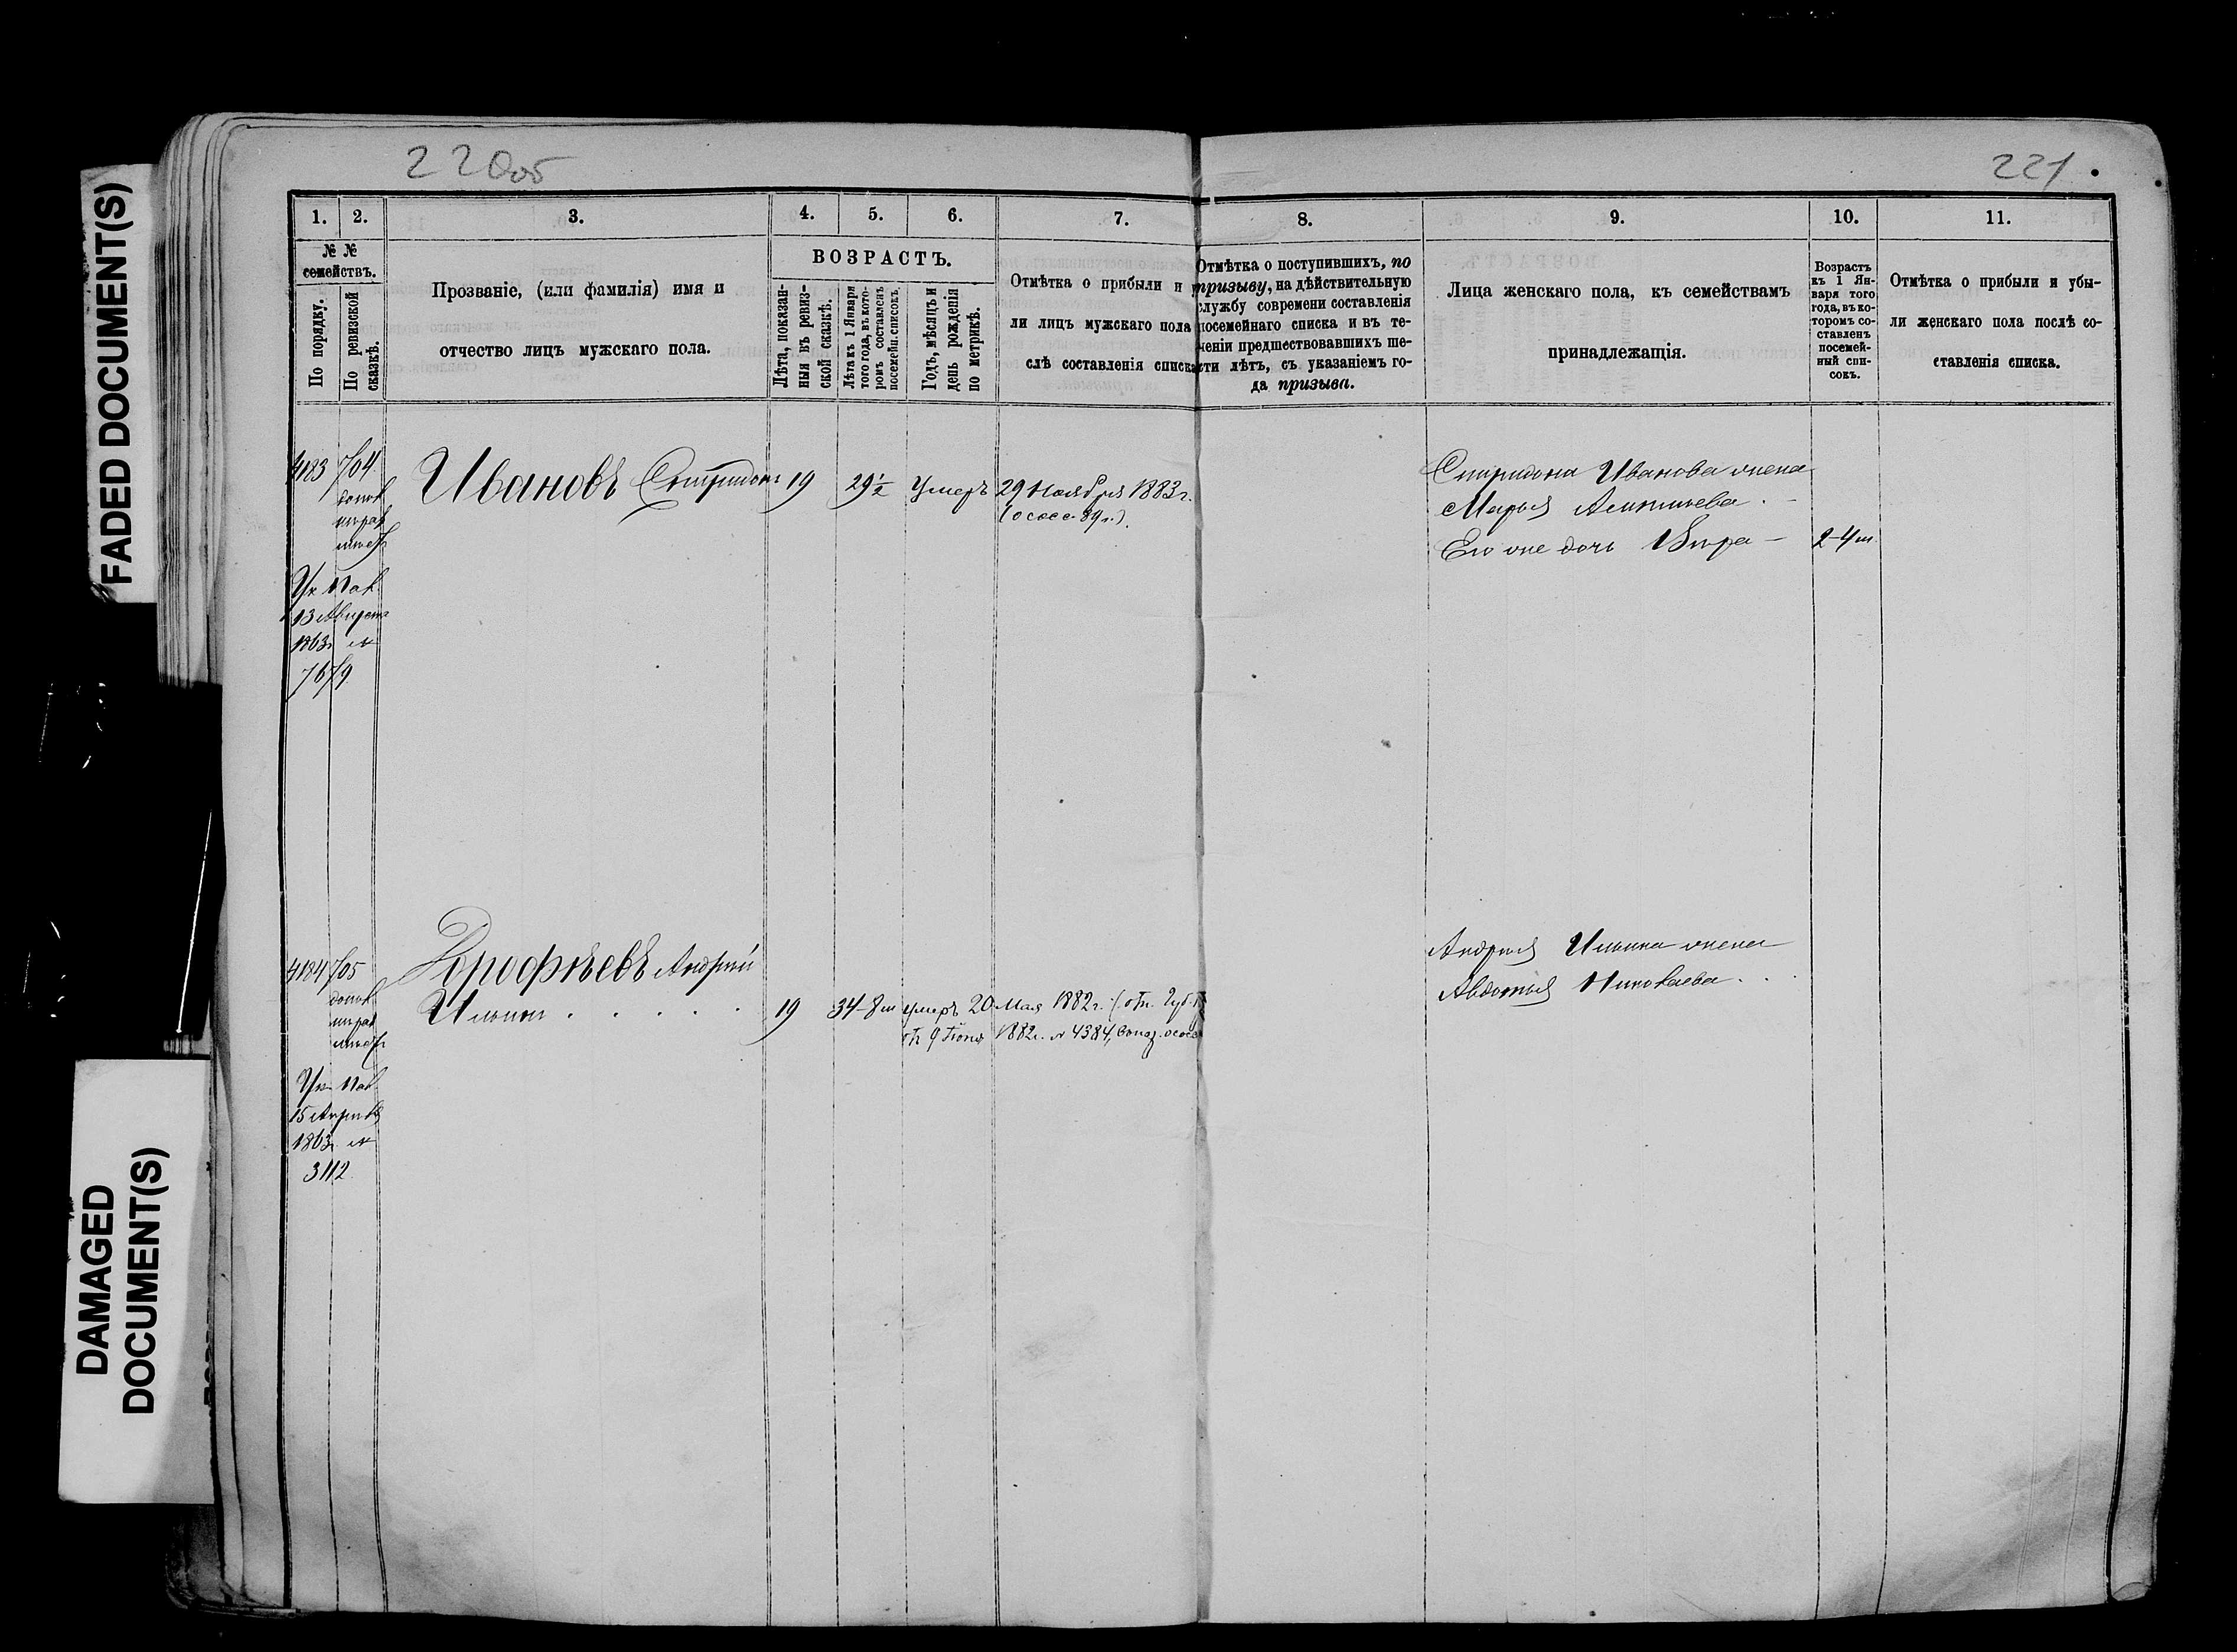 FADED DOCUMENT(S)
DAMAGED
DOCUMENT(S)
220об
221.
1.
2.
3.
4.
5.
6.
7.
8.
9.
10.
11.
№ №
семействъ.
По порядку.
По ревизской
сказкѣ.
Прозваніе, (или фамилія) имя и
отчество лицъ мужскаго пола.
ВОЗРАСТЪ.
Лѣта, показан-
ныя въ ревиз-
ской сказкѣ.
Лѣта къ 1 Января
того года, въ кото-
ромъ составленъ
посемейн. списокъ.
Годъ, мѣсяцъ и
день рожденія
по метрикѣ.
Отмѣтка о прибыли и у
ли лицъ мужскаго пола
слѣ составленія списка
Отмѣтка о поступившихъ, по
призыву, на дѣйствительную
службу современи составленія
посемейнаго списка и въ те-
ченіи предшествовавшихъ ше-
сти лѣтъ, съ указаніемъ го-
да призыва.
Лица женскаго пола, къ семействамъ
принадлежащія.
Возрастъ
къ 1 Ян-
варя того
года, въ ко-
торомъ со-
ставленъ
посемей-
ный спи-
сокъ.
Отмѣтка о прибыли и убы-
ли женскаго пола послѣ со-
ставленія списка.
4183 704
допол
Ук Пал
13 Августа
1863г №
7679
Ивановъ Спиридонъ 19 29½ Умеръ 29 Ноября 1883г.
Спиридона Иванова жена
Марья
Его же дочь Вѣра - 2-4 м
4184 705
допол
Ук Пал
15 Апрѣля
1863г №
3112
Дорофѣевъ Андрей
Ильинъ . . . . . 19 34-8 м умеръ 20 Мая 1882г. (
9 Іюня 1882г. № 4384,
Андрея Ильина жена
Авдотья Николаева . .